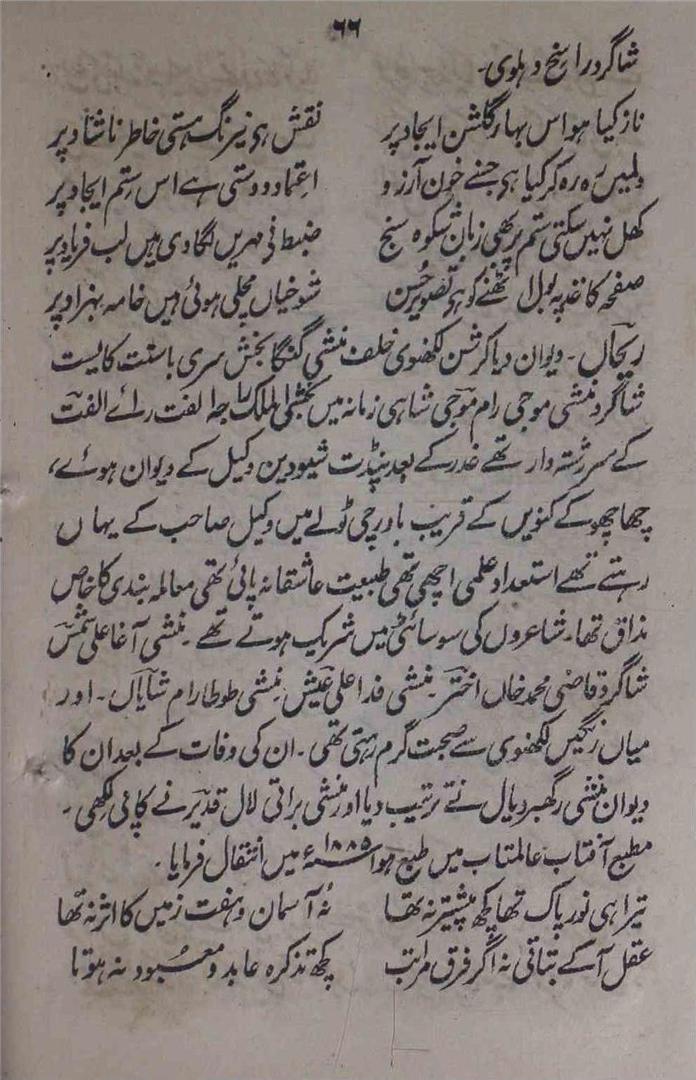 ۶۶
شاگرد راسخ دہلوی۔
ناز کیا ہو اس بہار گلشن ایجاد پر نقش ہی نیرنگ ہستی خاطر ناشاد پر
دلمیں رہ رہ کر کیا ہی جسنے خون آرزو اعتماد دوستی ہے اس ستم ایجاد پر
کھل نہیں سکتی ستم پر بھی زبان شکوہ سنج ضبط نی مہریں لگا دی ہیں لب فریاد پر
صفحہ کاغذ پہ بول اٹھنے کو ہی تصویر حسن شوخیاں مچلی ہوئی ہیں خامہ بہزاد پر
ریحاں۔ دیوان دیا کرشن لکھنوی خلف منشی گنگا بخش سری باستت کایست
شاگرد منشی موجی رام موجی شاہی زمانہ میں بخشی الملک راجہ الفت رائے الفت
کے سر رشتہ دار تھے غدر کے بعد پنڈت شیودین وکیل کے دیوان ہوئے،
چھاچھو کے کنویں کے قریب باورچی ٹولے میں وکیل صاحب کے یہاں
رہتے تھے استعداد علمی اچھی تھی طبیعت عاشقانہ پائی تھی معاملہ بندی کا خاص
مذاق تھا۔ شاعروں کی سوسائٹی میں شریک ہوتے تھے۔ منشی آغا علی شمس
شاگرد قاضی محمد خاں اختر۔ منشی فدا علی عیش۔ منشی طوطا رام شایاں۔ اور
میاں رنگیں لکھنوی سے صحبت گرم رہتی تھی۔ ان کی وفات کے بعد ان کا
دیوان منشی رگھبر دیال نے ترتیب دیا اور منشی براتی لال قدیر نے کاپی لکھی۔
مطبع آفتاب عالمتاب میں طبع ہوا ۱۸۸۵ء میں انتقال فرمایا۔
تیرا ہی نور پاک تھا کچھ پیشتر نہ تھا نہ آسمان و ہفت زمیں کا اثر نہ تھا
عقل آ کے بتاتی نہ اگر فرق مراتب کچھ تذکرہ عابد و معبود نہ ہوتا